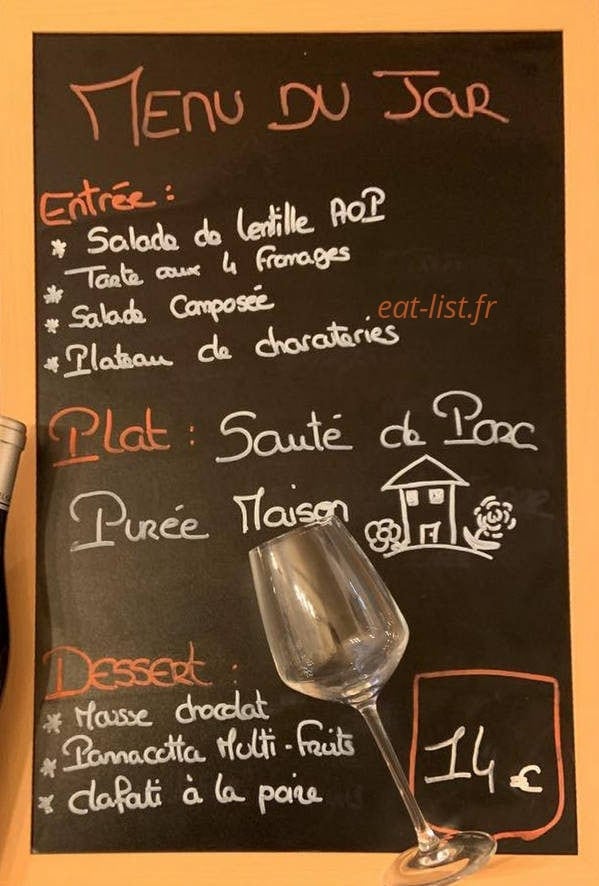 MENU DU JOUR
Entrée :
* Salade de lentille AOP
* Tarte aux 4 fromages
* Salade Composée
eat-list.fr
* Plateau de charcuteries
Plat : Sauté de Porc
Purée Maison
DESSERT :
* Mousse chocolat
* Pannacotta Multi-fruits
* clafouti à la poire
14 €